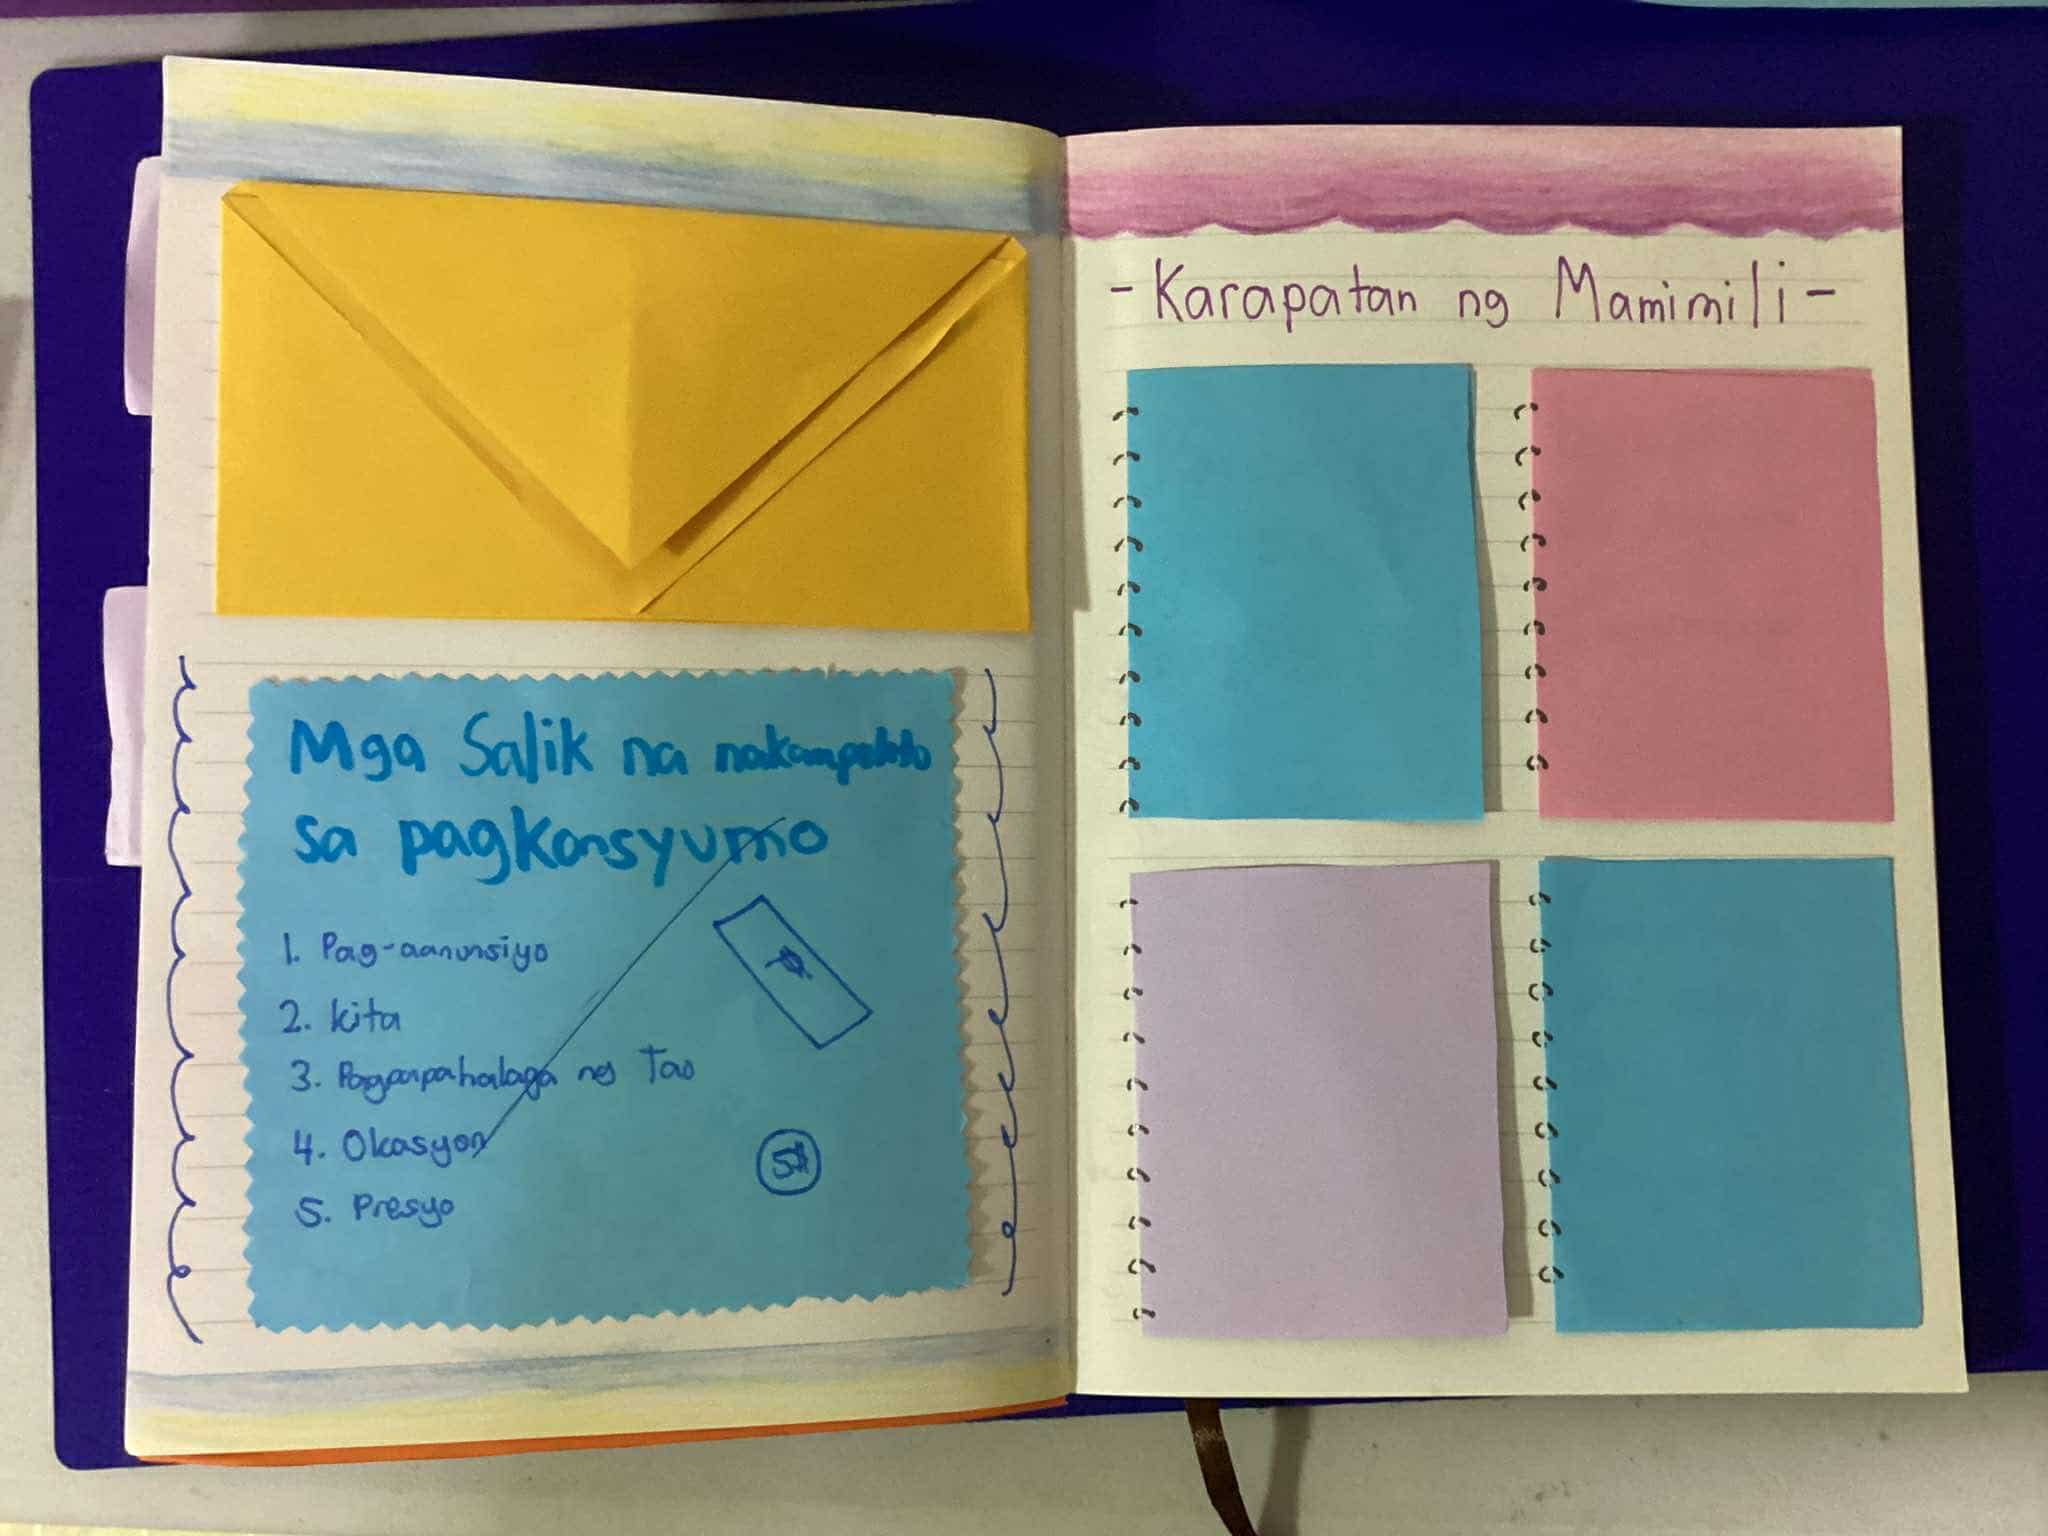 Mga Salik na
sa pagkonsyumo
1. Pag-aanunsiyo
2. kita
3. Pagpapahalaga ng Tao
4. Okasyon
5. Presyo
5
- Karapatan ng Mamimili -